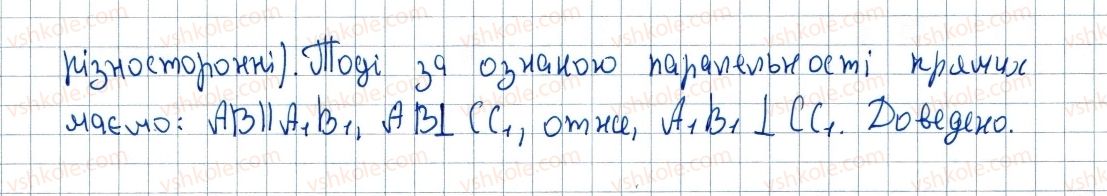 різносторонні). Тоді за ознакою паралельності прямих
маємо: AB || A₁B₁, AB ⊥ CC₁, отже, A₁B₁ ⊥ CC₁. Доведено.